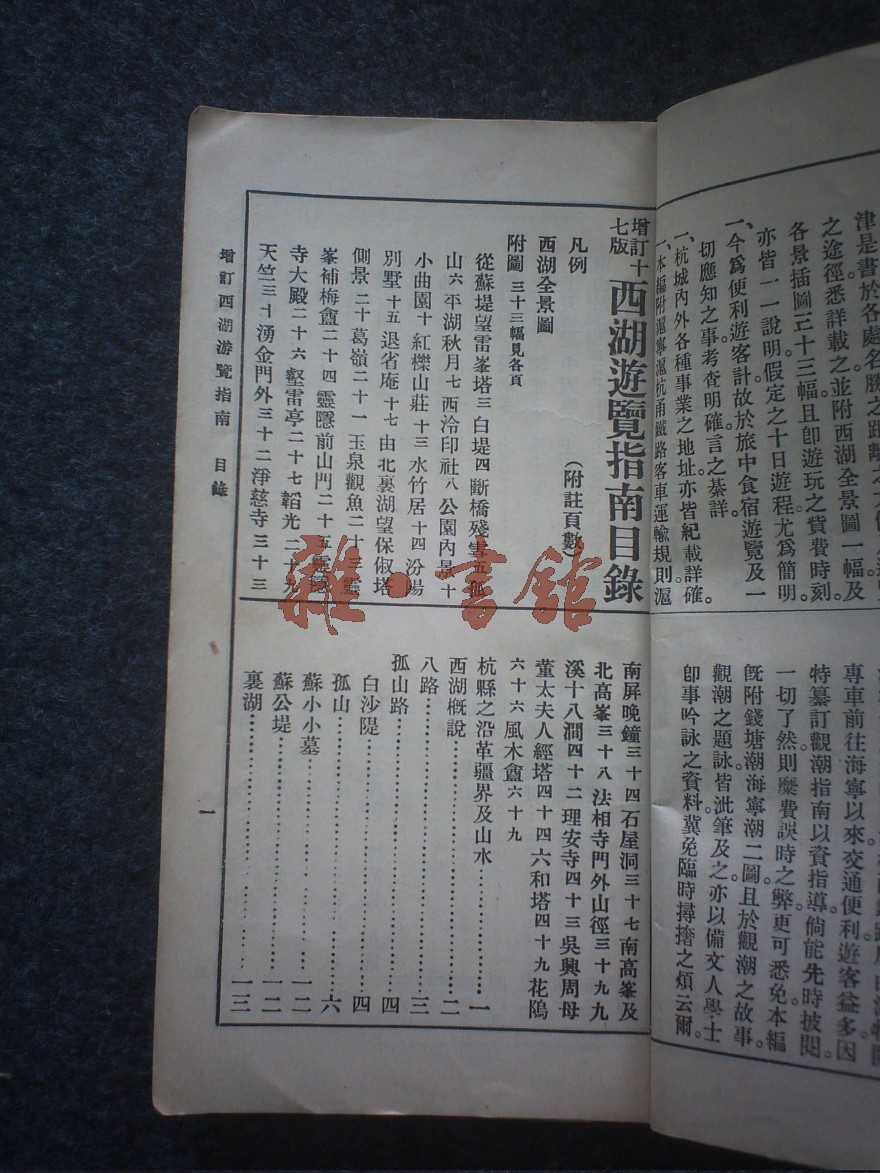 津是書於各處名勝之距離
之途徑悉詳載之並附西湖全景圖一幅及
各景插圖三十三幅且卽遊玩之費費時刻
亦皆一一說明假定之十日遊程尤爲簡明。
一、今爲便利遊客計故於旅中食宿遊覽及一
切應知之事考查明確言之綦詳
一、杭城內外各種事業之地址亦皆紀載詳確。
一、本編附滬寧滬杭甬鐵路客車運輸規則滬
專車前往海寧以來交通便利遊客益多因
特纂訂觀潮指南以資指導倘能先時披閱
一切了然則糜費誤時之弊更可悉免本編
旣附錢塘潮海寧潮二圖且於觀潮之故事
觀潮之題詠皆泚筆及之亦以備文人學士
卽事吟詠之資料冀免臨時撏撦之煩云爾。
增訂十七版 西湖遊覽指南目錄
凡例 (附註頁數)
西湖全景圖
附圖 三十三幅見各頁
從蘇堤望雷峯塔三 白堤四 斷橋殘雪五 孤
山六 平湖秋月七 西泠印社八 公園內景十
小曲園十 紅櫟山莊十三 水竹居十四 汾陽
別墅十五 退省庵十七 由北裏湖望保俶塔
側景二十 葛嶺二十一 玉泉觀魚二十三 靈
峯補梅盦二十四 靈隱前山門二十五 靈隱
寺大殿二十六 壑雷亭二十七 韜光二十九
天竺三十 湧金門外三十二 淨慈寺三十三
南屏晚鐘三十四 石屋洞三十七 南高峯及
北高峯三十八 法相寺門外山徑三十九 九
溪十八澗四十二 理安寺四十三 吳興周母
董太夫人經塔四十四 六和塔四十九 花隖
六十六 風木盦六十九
杭縣之沿革疆界及山水⋯⋯一
西湖概說⋯⋯二
八路⋯⋯三
孤山路⋯⋯四
白沙隄⋯⋯四
孤山⋯⋯六
蘇小小墓⋯⋯一二
蘇公堤⋯⋯一二
裏湖⋯⋯一三
增訂西湖游覽指南 目錄
一
雜·書館